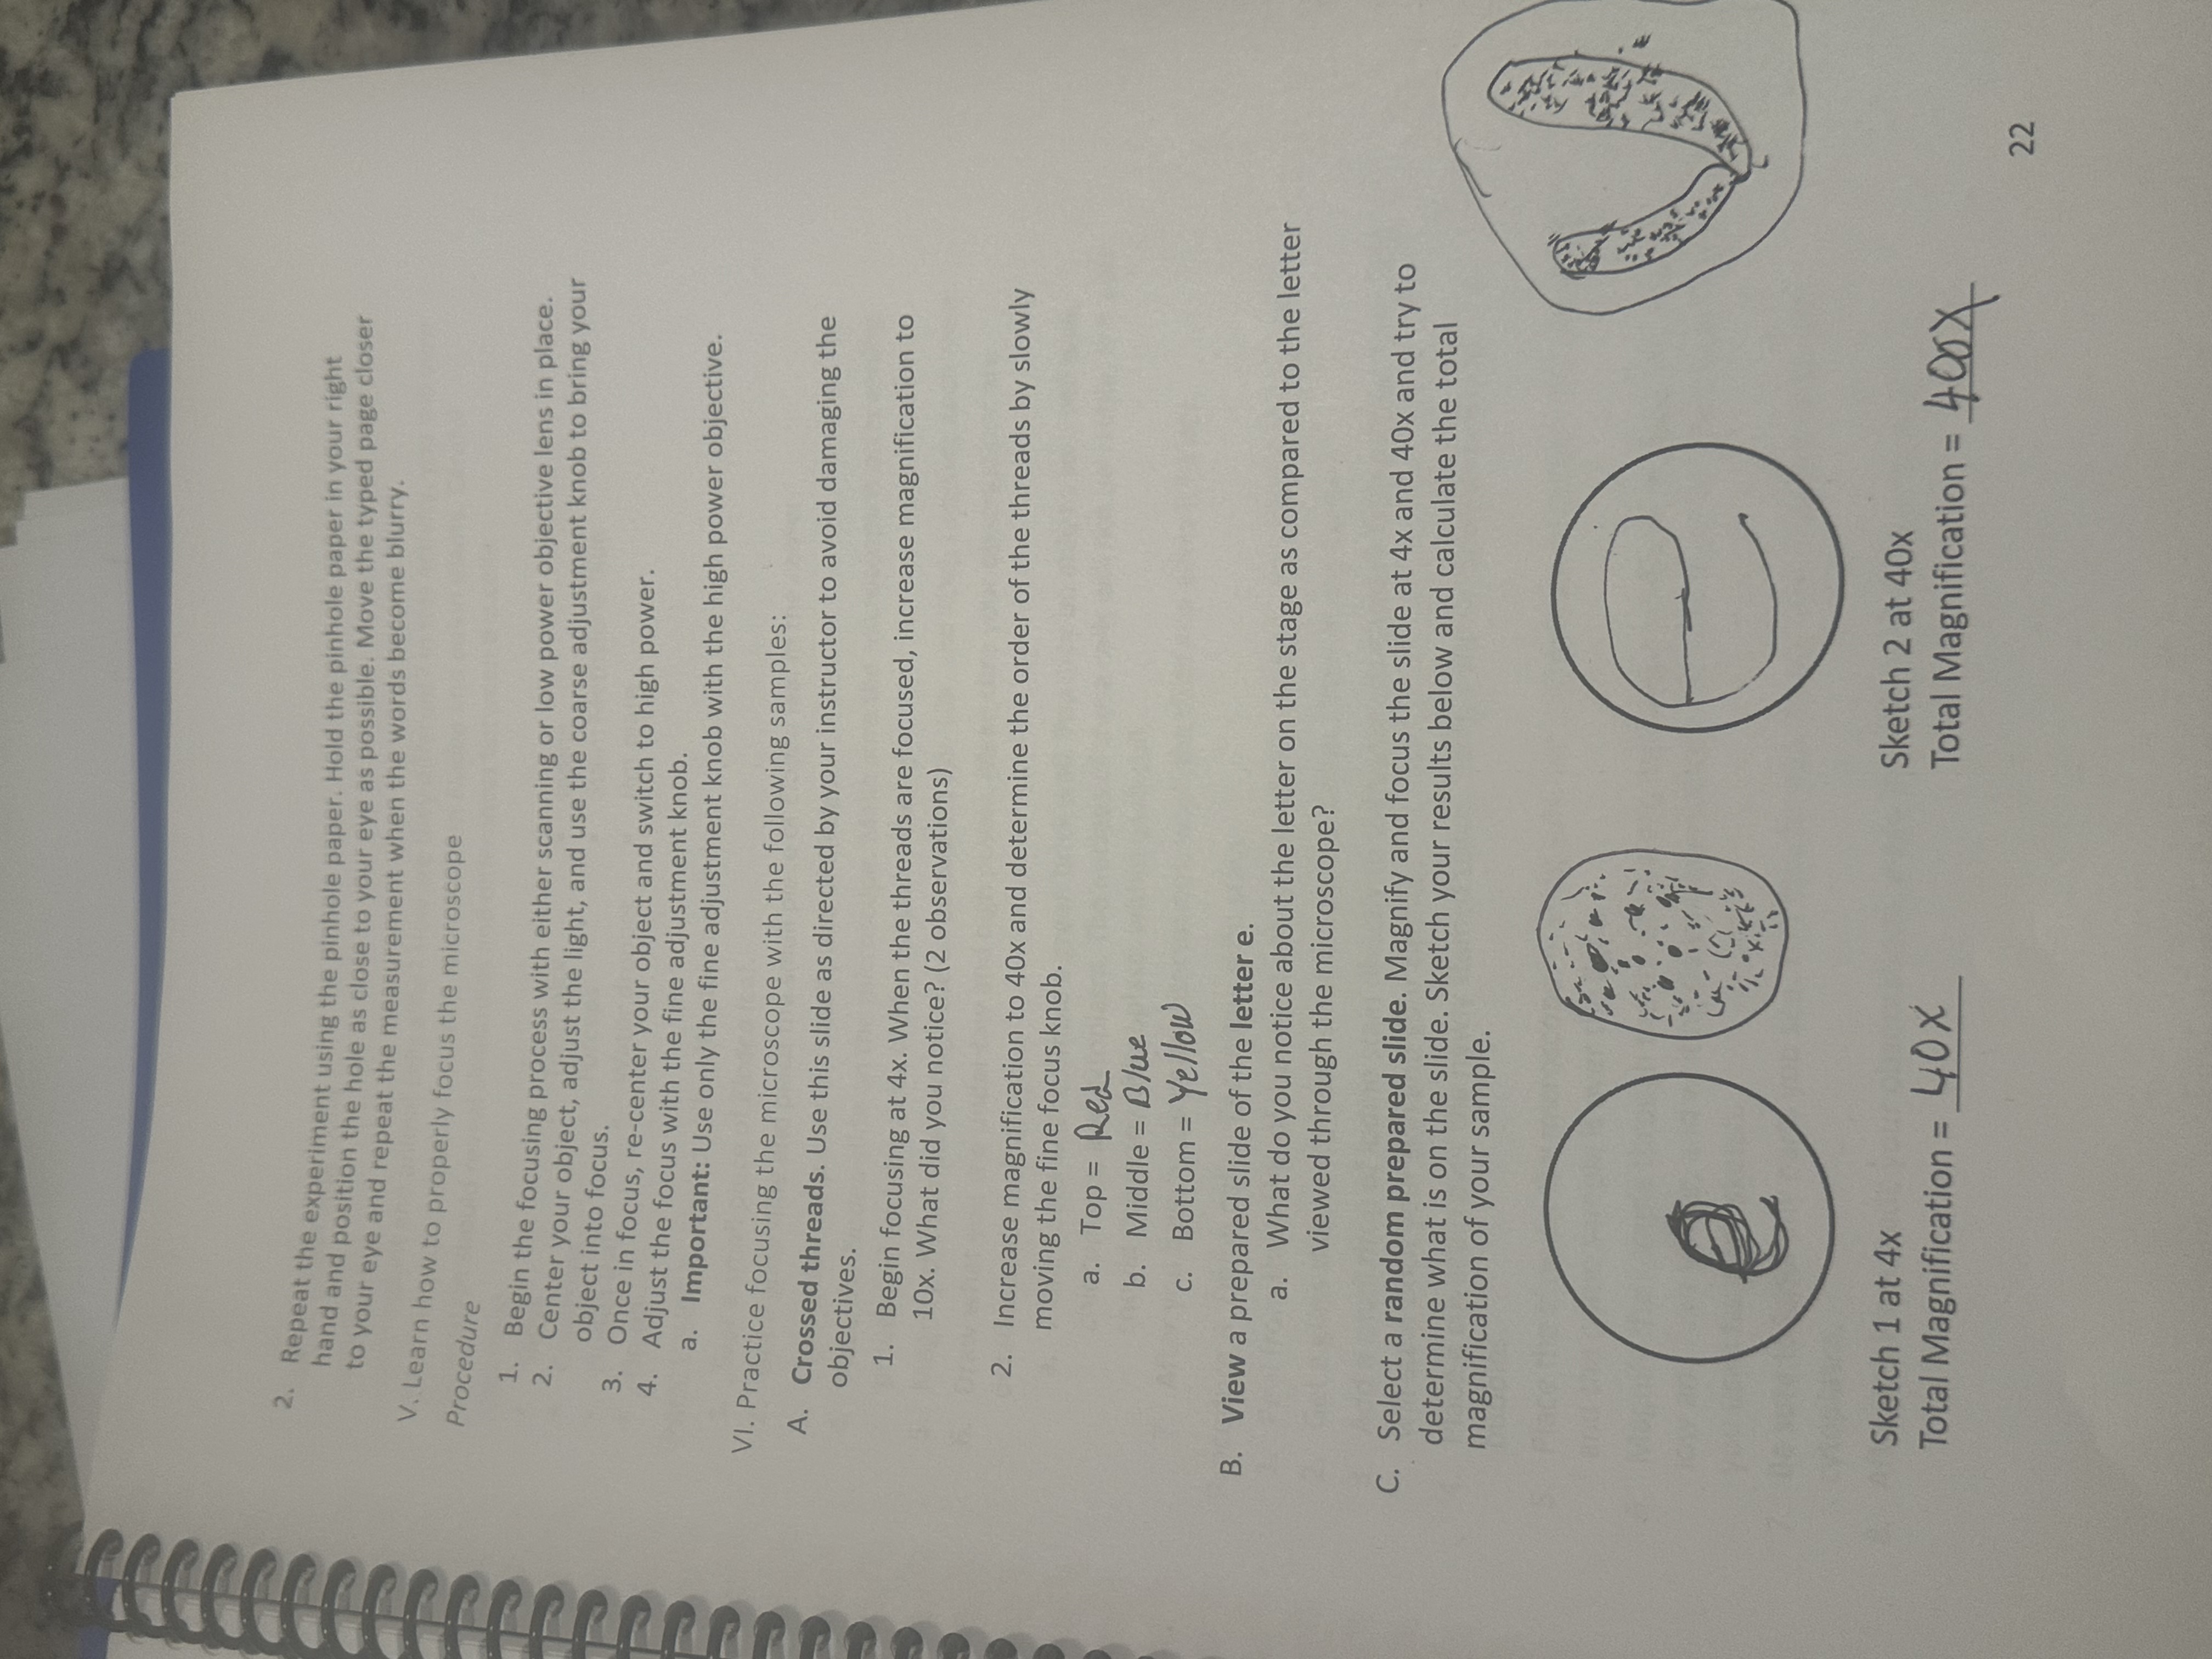 2. Repeat the experiment using the pinhole paper. Hold the pinhole paper in your right
hand and position the hole as close to your eye as possible. Move the typed page closer
to your eye and repeat the measurement when the words become blurry.
V. Learn how to properly focus the microscope
Procedure
1. Begin the focusing process with either scanning or low power objective lens in place.
2. Center your object, adjust the light, and use the coarse adjustment knob to bring your
object into focus.
3. Once in focus, re-center your object and switch to high power.
4. Adjust the focus with the fine adjustment knob.
a. Important: Use only the fine adjustment knob with the high power objective.
VI. Practice focusing the microscope with the following samples:
A. Crossed threads. Use this slide as directed by your instructor to avoid damaging the
objectives.
1. Begin focusing at 4x. When the threads are focused, increase magnification to
10x. What did you notice? (2 observations)
2. Increase magnification to 40x and determine the order of the threads by slowly
moving the fine focus knob.
a. Top = Red
b. Middle = Blue
c. Bottom = Yellow
B. View a prepared slide of the letter e.
a. What do you notice about the letter on the stage as compared to the letter
viewed through the microscope?
C. Select a random prepared slide. Magnify and focus the slide at 4x and 40x and try to
determine what is on the slide. Sketch your results below and calculate the total
magnification of your sample.
e
e
Sketch 1 at 4x
Total Magnification = 40X
Sketch 2 at 40x
Total Magnification = 400X
22